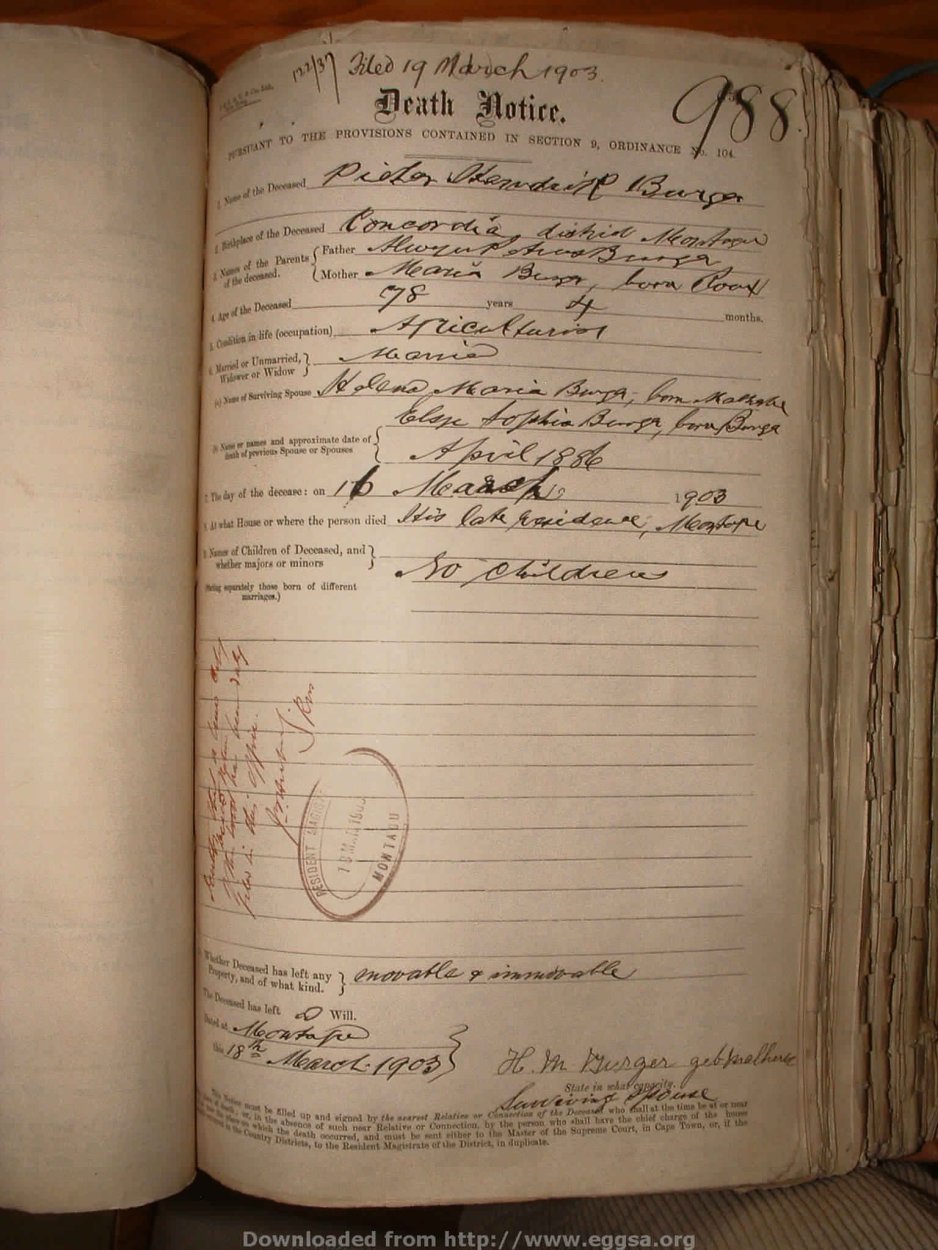 122/37 Filed 19 March 1903.
988
Death Notice.
PURSUANT TO THE PROVISIONS CONTAINED IN SECTION 9, ORDINANCE No. 104.
1. Name of the Deceased Pieter Hendrik Burger
2. Birthplace of the Deceased Concordia, district Montagu
3. Names of the Parents of the deceased. { Father Burger
Mother Maria Burger, born Roux
4. Age of the Deceased 78 years 4 months.
5. Condition in life (occupation) Agriculturist
6. Married or Unmarried, Widower or Widow } Married
(a) Name of Surviving Spouse Helena Maria Burger, born Malherbe
Elsje Sophia Burger, born Burger
(b) Name or names and approximate date of death of previous Spouse or Spouses { April 1886
7. The day of the decease: on 16 March 1903
8. At what House or where the person died His late residence, Montagu
9. Names of Children of Deceased, and whether majors or minors } No children
(Stating separately those born of different marriages.)
RESIDENT MAGISTRATE
18 MAR 1903
MONTAGU
Whether Deceased has left any Property, and of what kind. } movable & immovable
The Deceased has left a Will.
Dated at Montagu
this 18th March 1903
H. M. Burger geb Malherbe
State in what capacity.
Surviving Spouse
This Notice must be filled up and signed by the nearest Relative or Connection of the Deceased who shall at the time be at or near
the place of death; or, in the absence of such near Relative or Connection, by the person who shall have the chief charge of the house
in or the place on which the death occurred, and must be sent either to the Master of the Supreme Court, in Cape Town, or, if the
death occurred in the Country Districts, to the Resident Magistrate of the District, in duplicate.
Downloaded from http://www.eggsa.org